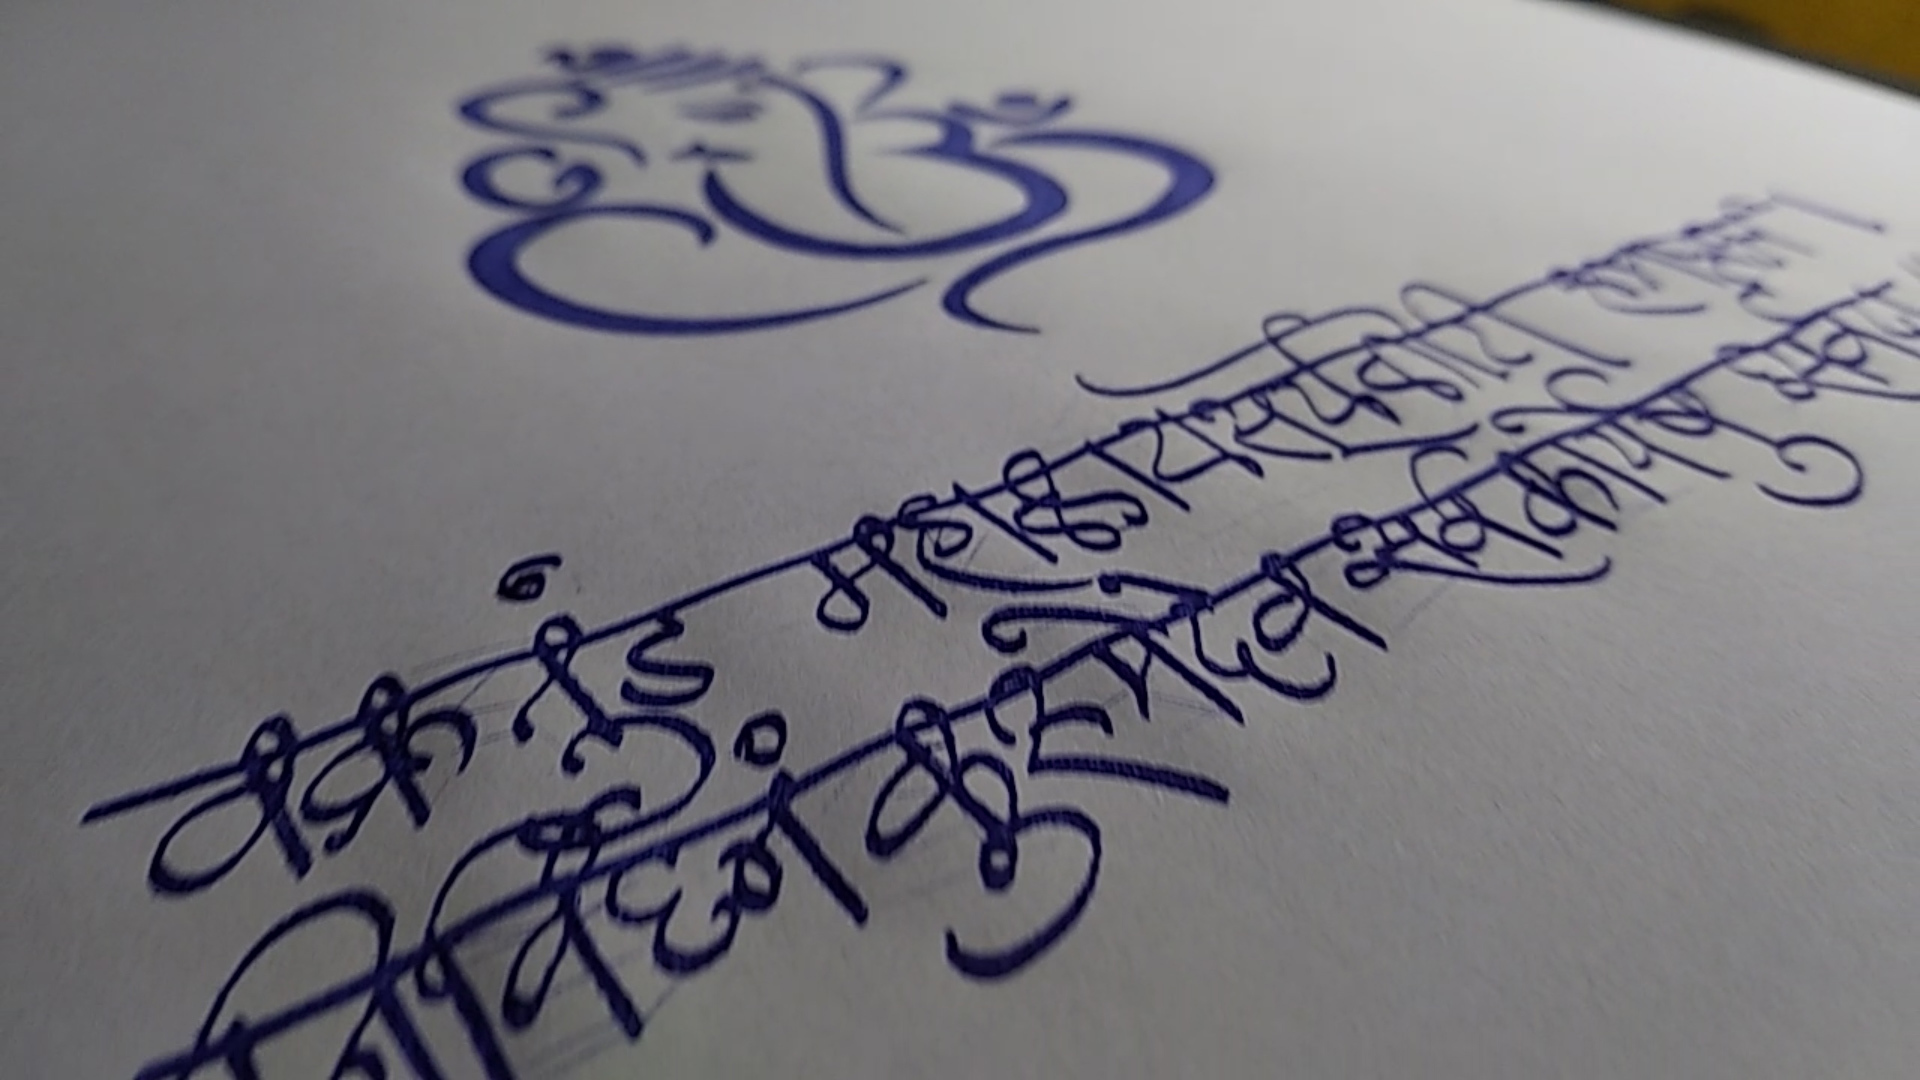 वक्रतुंड महाकाय सूर्यकोटी समप्रभ ।
निर्विघ्नं कुरुमेदेव सर्वकार्येषु